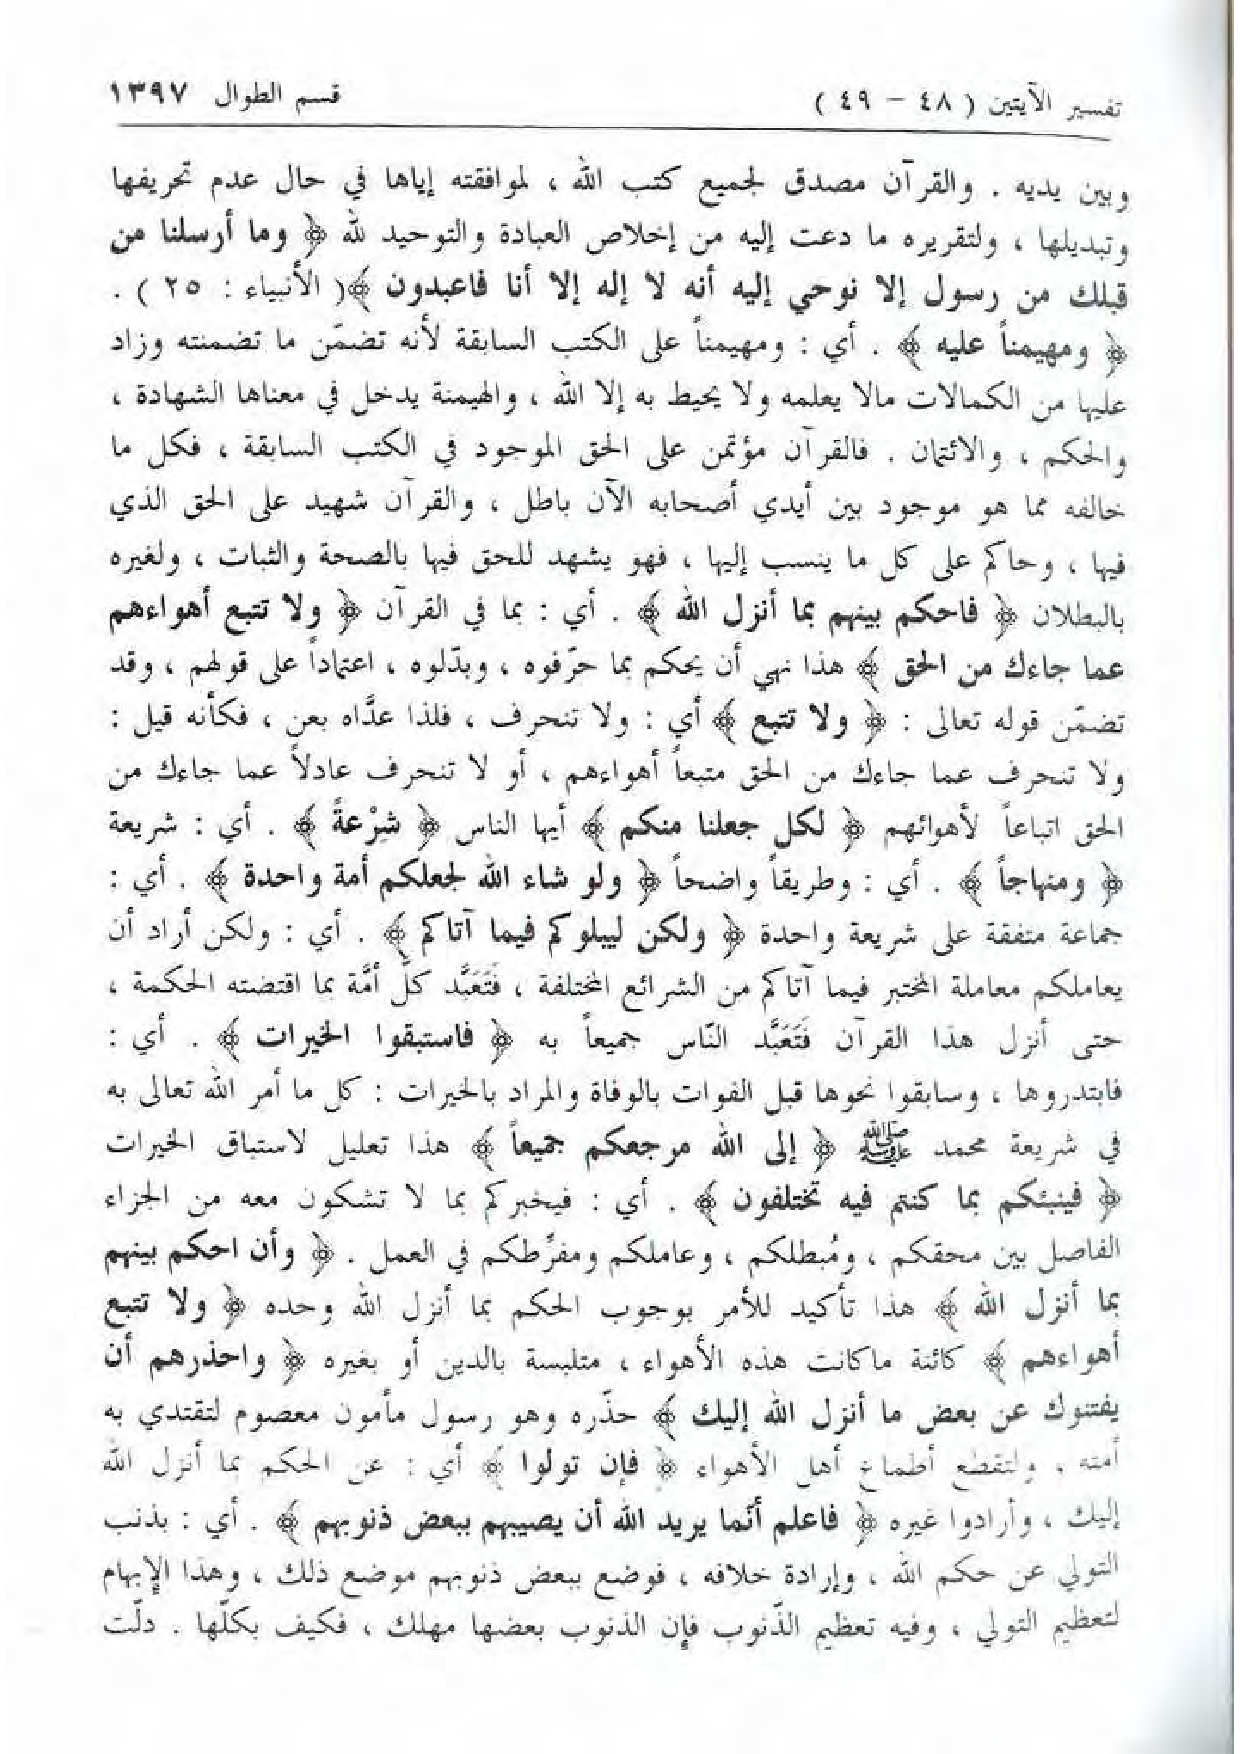 تفسير الآيتين ( ٤٨ - ٤٩ ) قسم الطوال ١٣٩٧
وبين يديه . والقرآن مصدق لجميع كتب الله ، لموافقته إياها في حال عدم تحريفها
وتبديلها ، ولتقريره ما دعت إليه من إخلاص العبادة والتوحيد لله ﴿ وما أرسلنا من
قبلك من رسول إلا نوحي إليه أنه لا إله إلا أنا فاعبدون ﴾( الأنبياء : ٢٥ ) .
﴿ ومهيمناً عليه ﴾ . أي : ومهيمناً على الكتب السابقة لأنه تضمّن ما تضمنته وزاد
عليها من الكمالات مالا يعلمه ولا يحيط به إلا الله ، والهيمنة يدخل في معناها الشهادة ،
والحكم ، والائتمان . فالقرآن مؤتمن على الحق الموجود في الكتب السابقة ، فكل ما
خالفه مما هو موجود بين أيدي أصحابه الآن باطل ، والقرآن شهيد على الحق الذي
فيها ، وحاكم على كل ما ينسب إليها ، فهو يشهد للحق فيها بالصحة والثبات ، ولغيره
بالبطلان ﴿ فاحكم بينهم بما أنزل الله ﴾ . أي : بما في القرآن ﴿ ولا تتبع أهواءهم
عما جاءك من الحق ﴾ هذا نهي أن يحكم بما حرّفوه ، وبدّلوه ، اعتماداً على قولهم ، وقد
تضمّن قوله تعالى : ﴿ ولا تتبع ﴾ أي : ولا تنحرف ، فلذا عدَّاه بعن ، فكأنه قيل :
ولا تنحرف عما جاءك من الحق متبعاً أهواءهم ، أو لا تنحرف عادلاً عما جاءك من
الحق اتباعاً لأهوائهم ﴿ لكل جعلنا منكم ﴾ أيها الناس ﴿ شِرْعةً ﴾ . أي : شريعة
﴿ ومنهاجاً ﴾ . أي : وطريقاً واضحاً ﴿ ولو شاء الله لجعلكم أمة واحدة ﴾ . أي :
جماعة متفقة على شريعة واحدة ﴿ ولكن ليبلوكم فيما آتاكم ﴾ . أي : ولكن أراد أن
يعاملكم معاملة المختبر فيما آتاكم من الشرائع المختلفة ، فَتَعَبَّد كلَّ أمَّة بما اقتضته الحكمة ،
حتى أنزل هذا القرآن فَتَعَبَّد النّاس جميعاً به ﴿ فاستبقوا الخيرات ﴾ . أي :
فابتدروها ، وسابقوا نحوها قبل الفوات بالوفاة والمراد بالخيرات : كل ما أمر الله تعالى به
في شريعة محمد ﷺ ﴿ إلى الله مرجعكم جميعاً ﴾ هذا تعليل لاستباق الخيرات
﴿ فينبئكم بما كنتم فيه تختلفون ﴾ . أي : فيخبركم بما لا تشكون معه من الجزاء
الفاصل بين محقكم ، ومُبطلكم ، وعاملكم ومفرِّطكم في العمل . ﴿ وأن احكم بينهم
بما أنزل الله ﴾ هذا تأكيد للأمر بوجوب الحكم بما أنزل الله وحده ﴿ ولا تتبع
أهواءهم ﴾ كائنة ماكانت هذه الأهواء ، متلبسة بالدين أو بغيره ﴿ واحذرهم أن
يفتنوك عن بعض ما أنزل الله إليك ﴾ حذّره وهو رسول مأمون معصوم لتقتدي به
أمته ، ولتقطع أطماع أهل الأهواء ﴿ فإن تولوا ﴾ أي : عن الحكم بما أنزل الله
إليك ، وأرادوا غيره ﴿ فاعلم أنما يريد الله أن يصيبهم ببعض ذنوبهم ﴾ . أي : بذنب
التولي عن حكم الله ، وإرادة خلافه ، فوضع ببعض ذنوبهم موضع ذلك ، وهذا الإبهام
لتعظيم التولي ، وفيه تعظيم الذّنوب فإن الذنوب بعضها مهلك ، فكيف بكلّها . دلّت